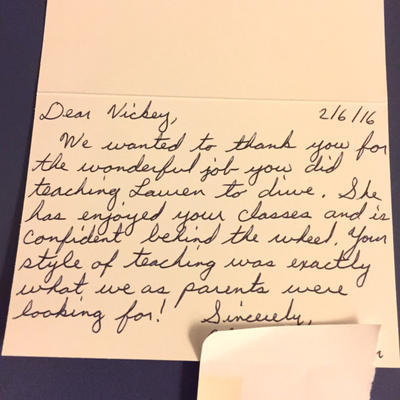 Dear Vickey, 2/6/16
We wanted to thank you for
the wonderful job you did
teaching Lauren to drive. She
has enjoyed your classes and is
confident behind the wheel. Your
style of teaching was exactly
what we as parents were
looking for! Sincerely,